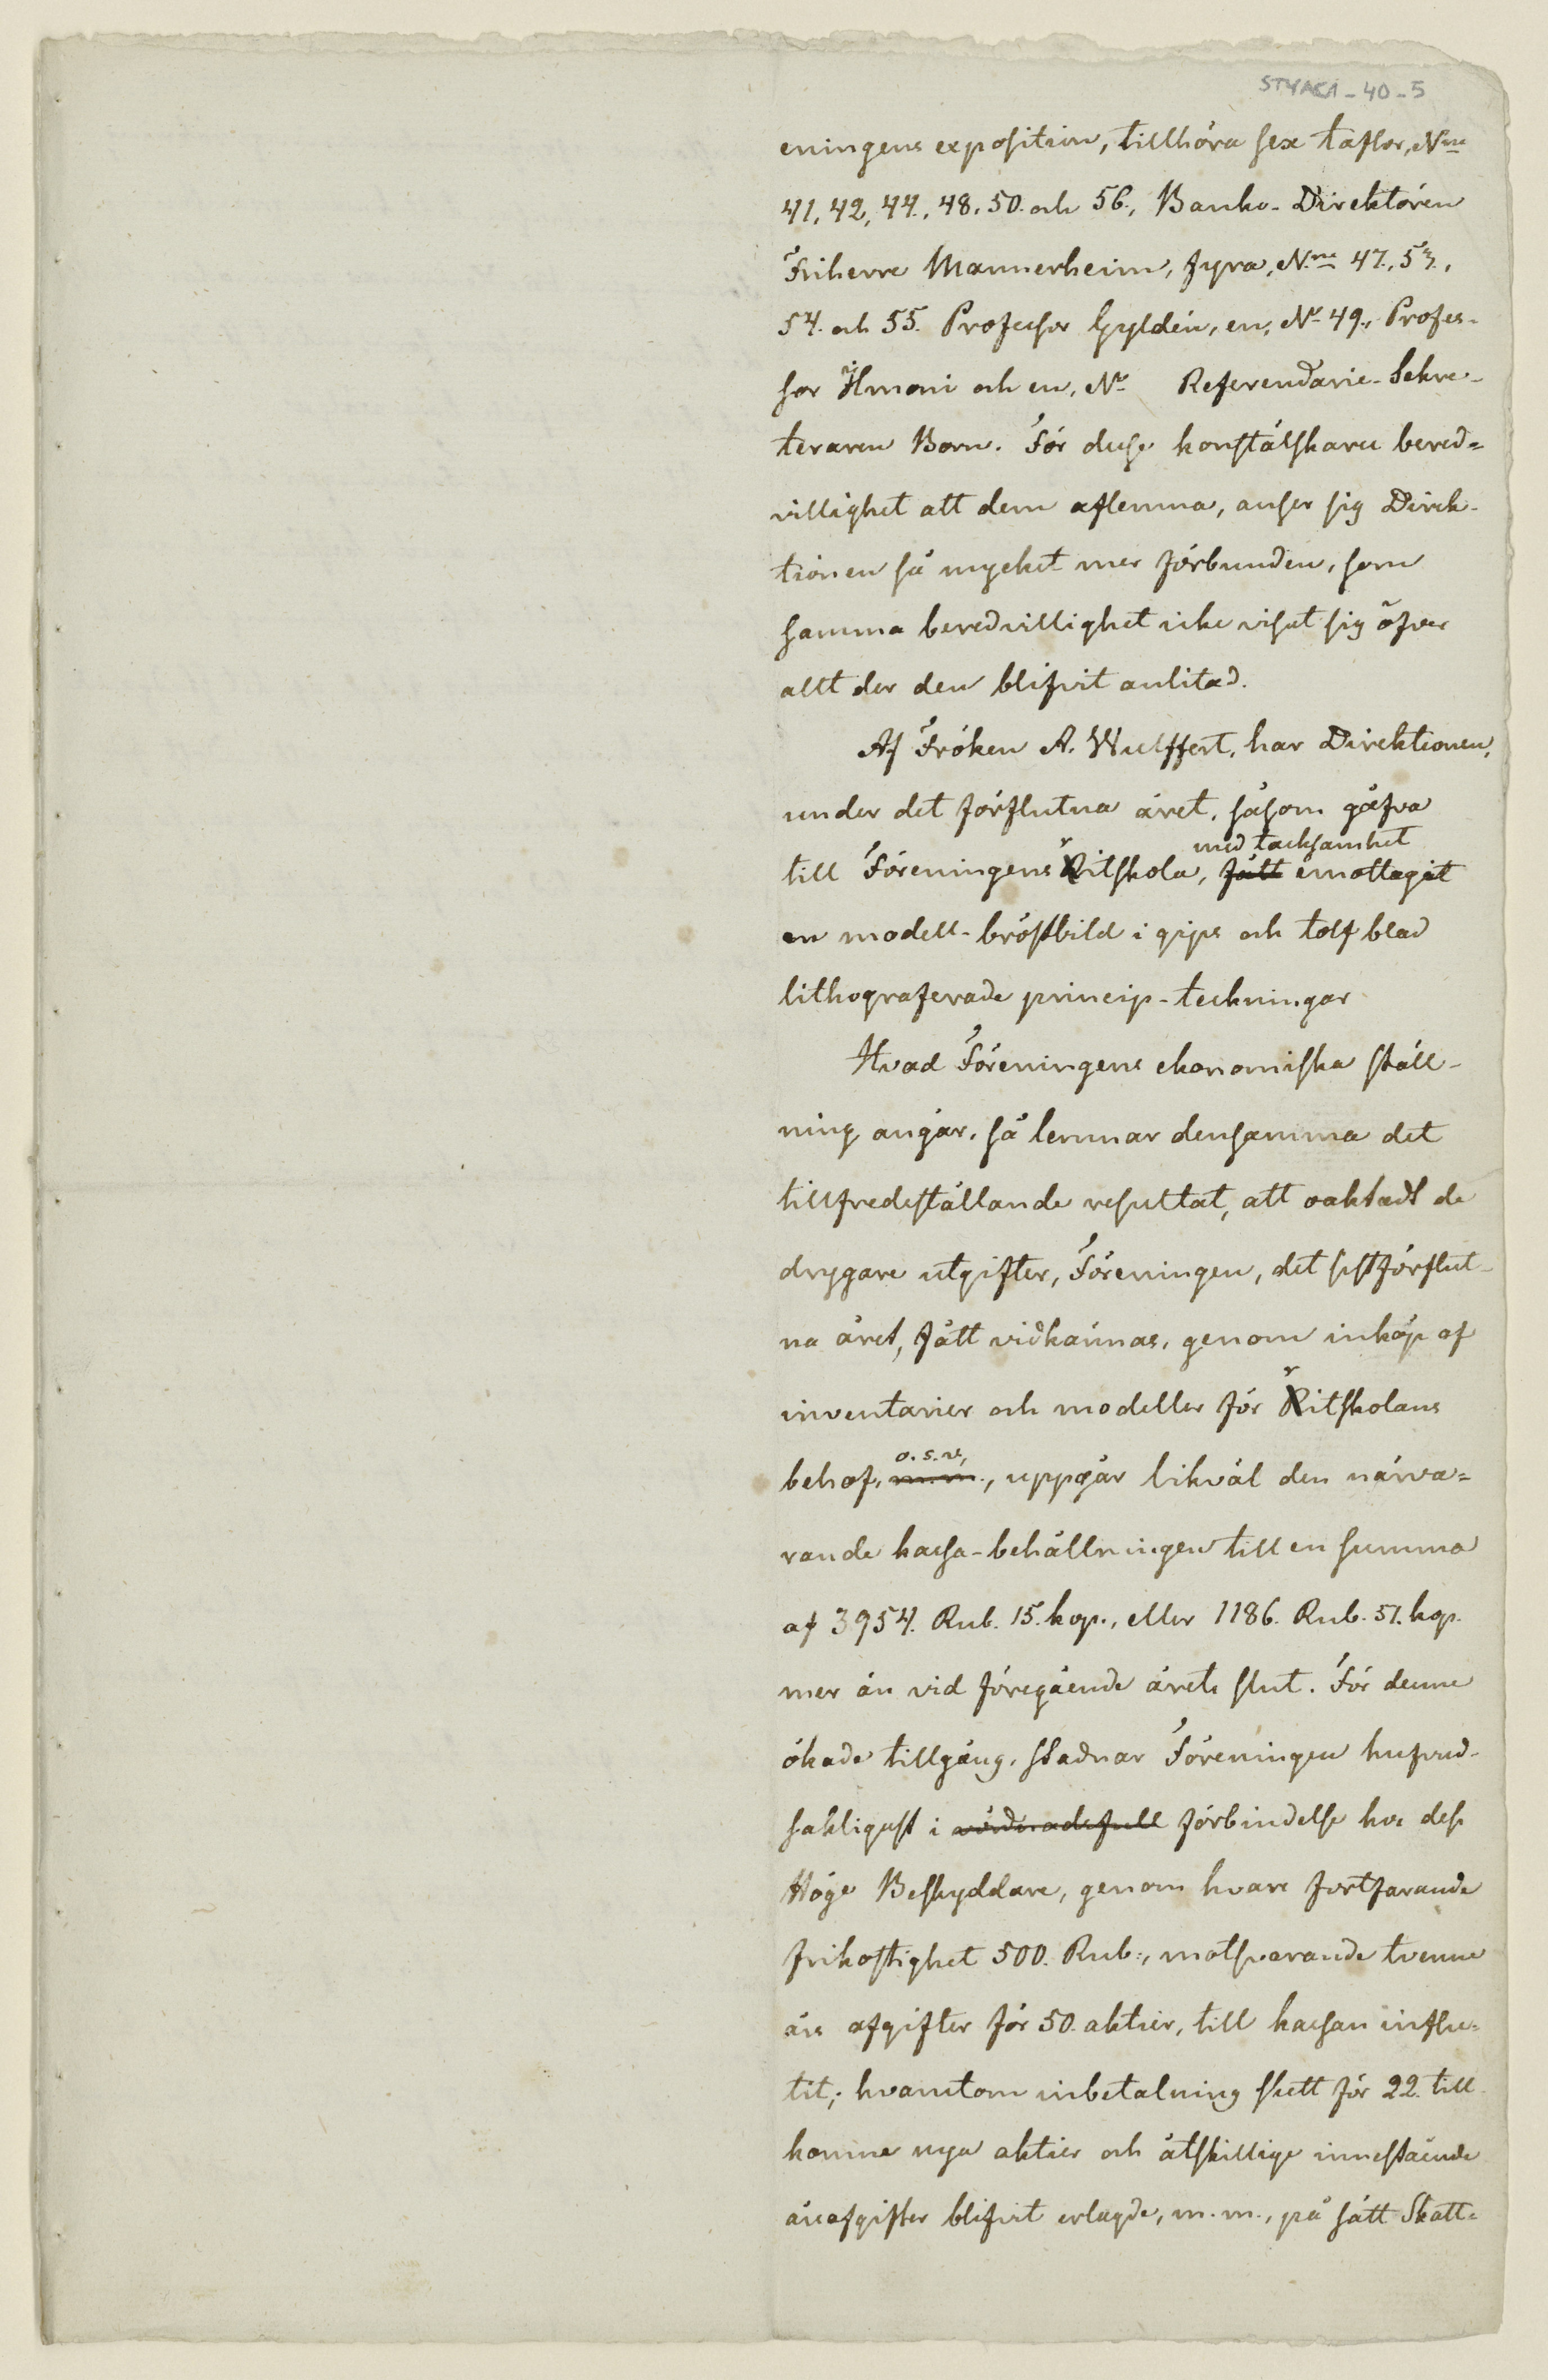 STYAC1-40-5
eningens exposition, tillhöra sex taflor, N:ne
41, 42, 44, 48, 50. och 56., Banko-Direktören
Friherre Mannerheim, fyra, N:ne 47., 53.,
54. och 55. Professor Gyldén, en, N:o 49., Profes-
sor Ilmoni och en, N:o Referendarie-Sekre-
teraren Born. För desse konstälskares bered=
villighet att dem aflemna, anser sig Direk-
tionen så mycket mer förbunden, som
samma beredvillighet icke visat sig öfver
allt der den blifvit anlitad.
Af Fröken A. Wulffert, har Direktionen,
under det förflutna året, såsom gåfva
med tacksamhet
till Föreningens Ritskola, fått emottagit
en modell-bröstbild i gips och tolf blad
lithograferade princip-teckningar
Hvad Föreningens ekonomiska ställ-
ning angår, så lemnar densamma det
tillfredsställande resultat, att oaktadt de
drygare utgifter, Föreningen, det sistförflut-
na året, fått vidkännas, genom inköp af
inventarier och modeller för Ritskolans
o.s.v,
behof, m.m., uppgår likväl den närva=
rande kassa-behållningen till en summa
af 3954. Rub. 15. kop., eller 1186. Rub. 51. kop.
mer än vid föregående årets slut. För denne
ökade tillgång, stadnar Föreningen hufvud-
sakligast i vördnadsfull förbindelse hos dess
Höge Beskyddare, genom hvars fortfarande
frikostighet 500. Rub:, motsvarande tvenne
års afgifter för 50. aktier, till kassan influ=
tit; hvarutom inbetalning skett för 22. till
komne nya aktier och åtskillige innestående
årsafgifter blifvit erlagde, m.m., på sätt Skatt=